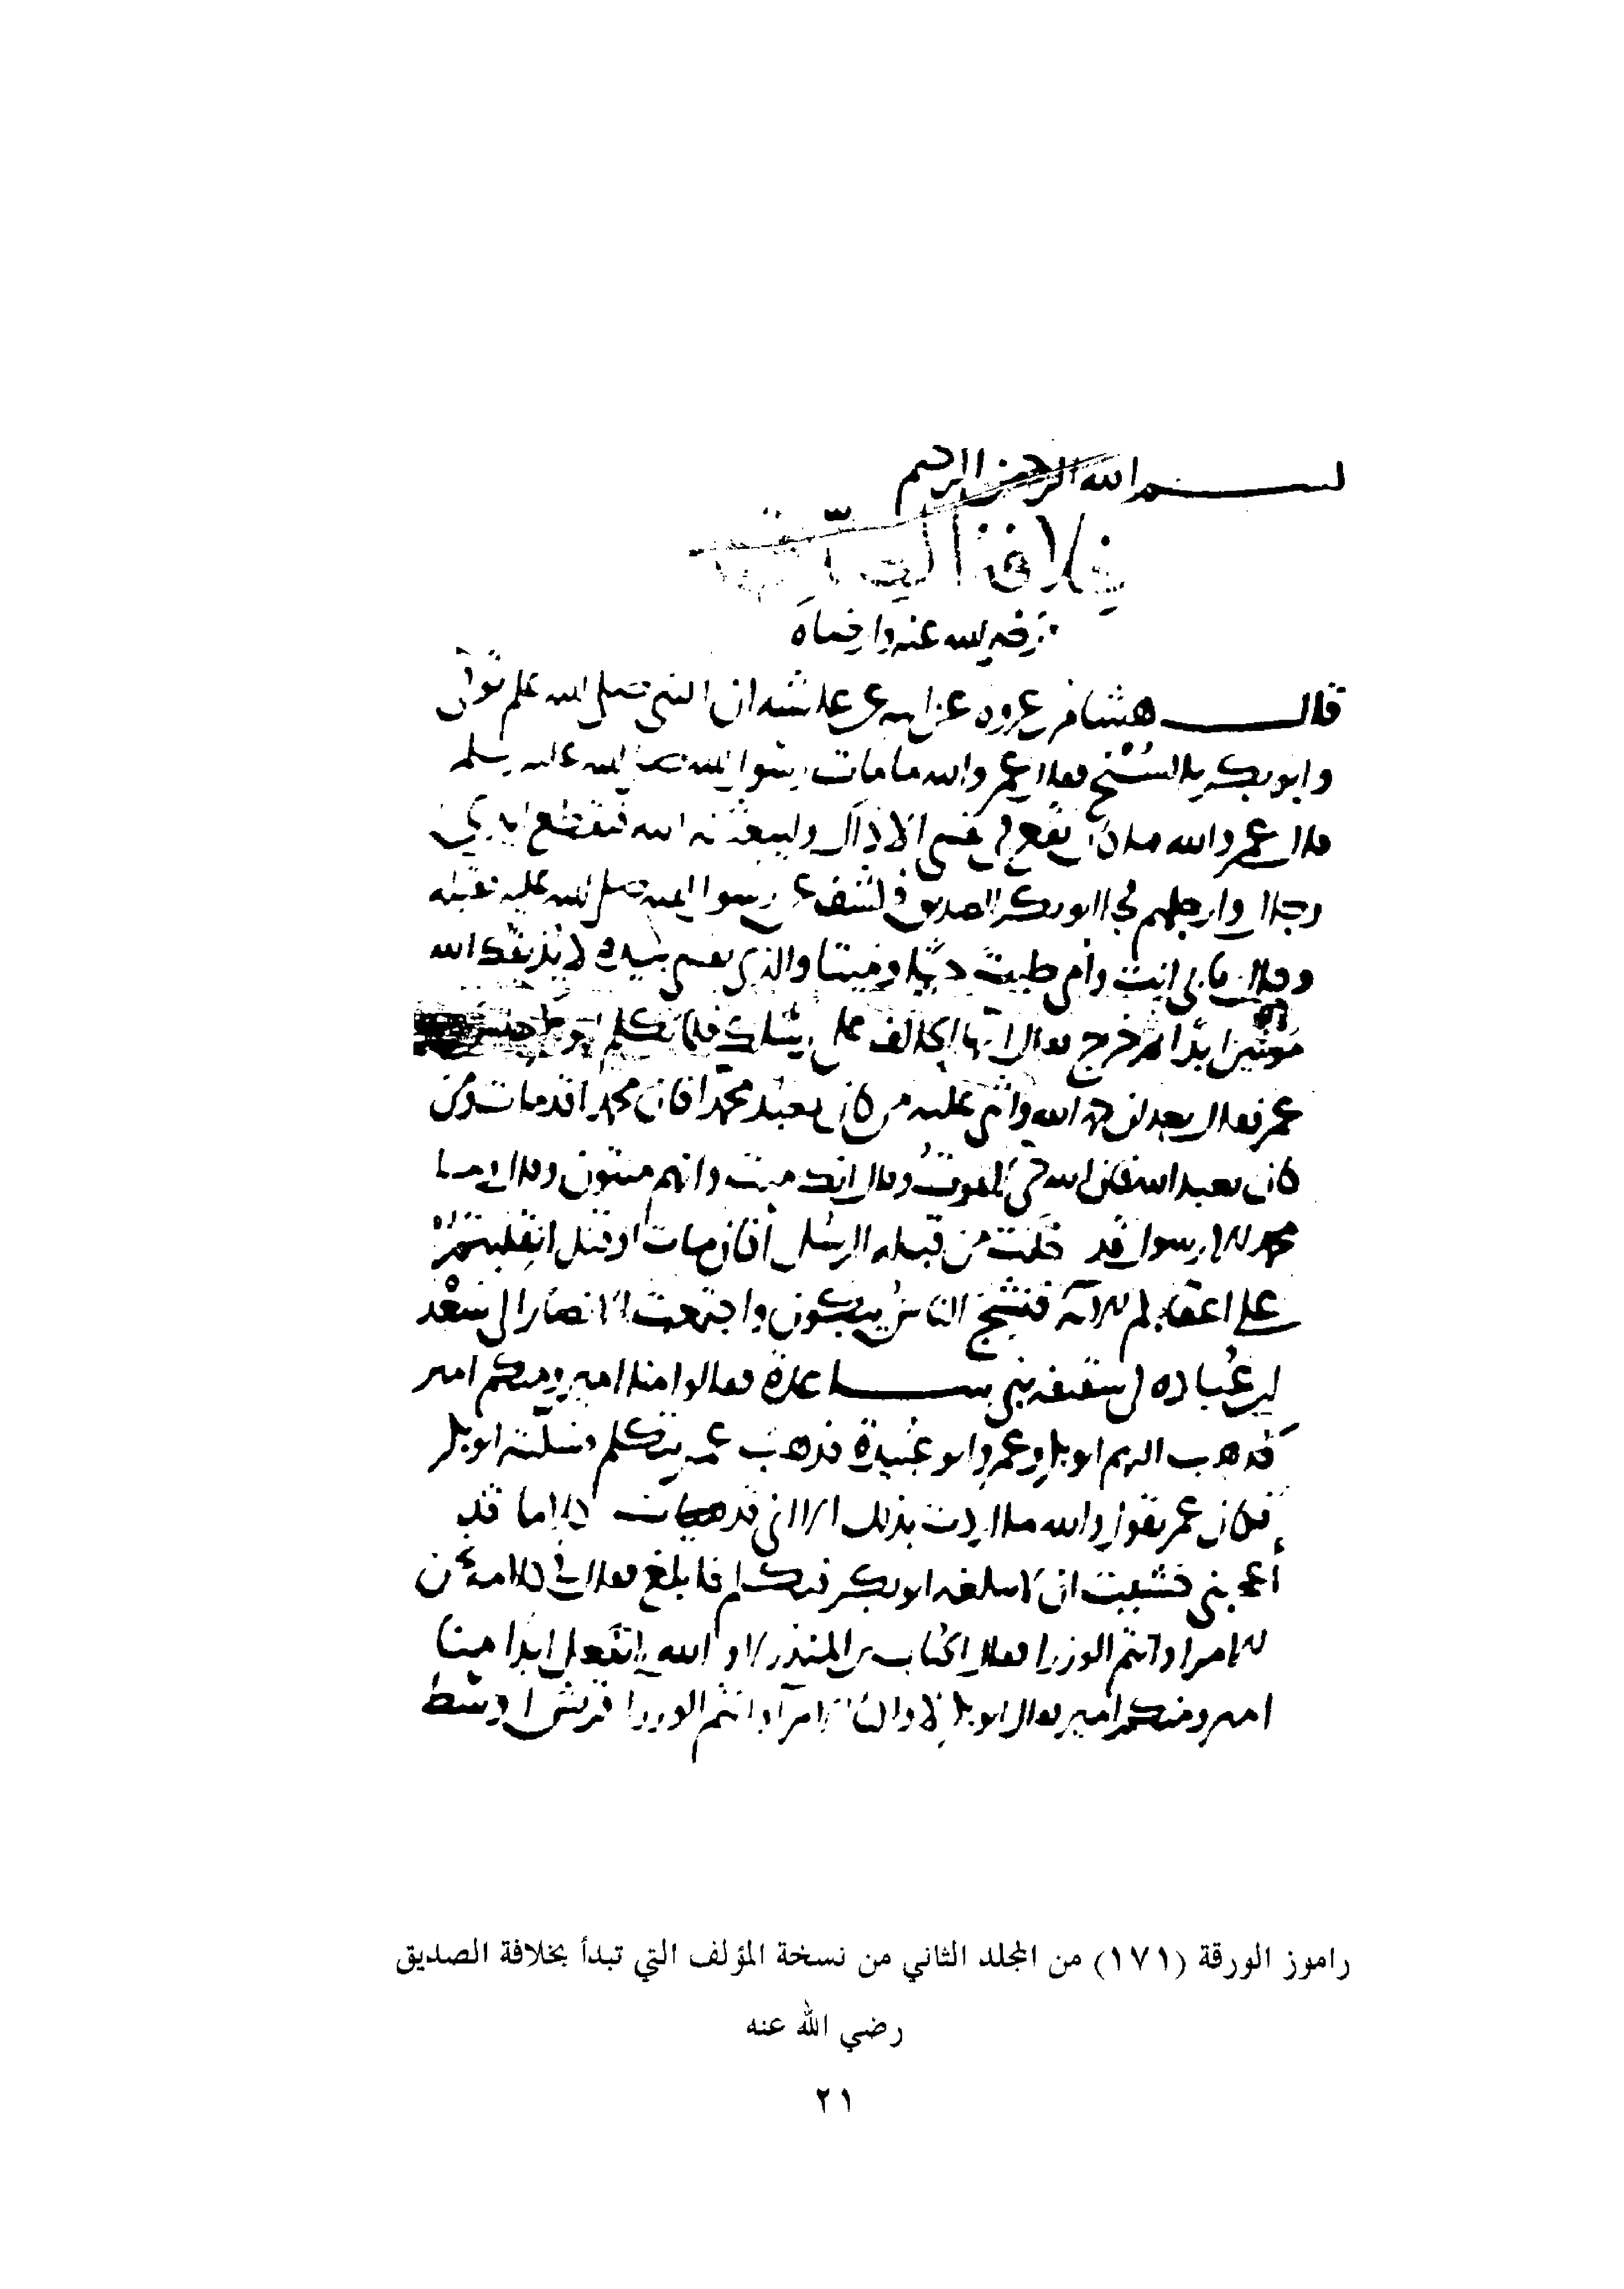 بسم الله الرحمن الرحيم
خلافة الصديق
رضي الله عنه وارضاه
قال هشام بن عروه عن ابيه عن عائشه ان النبي صلى الله عليه وسلم توفي
وابو بكر بالسنح فقال عمر والله ما مات رسول الله صلى الله عليه وسلم
قال عمر والله ما كان يقع في نفسي الا ذاك وليبعثنه الله فيقطع ايدي
رجال وارجلهم فجا ابو بكر الصديق فكشف عن رسول الله صلى الله عليه فقبله
وقال بابي انت وامي طبت حيا وميتا والذي نفسي بيده لا يذيقك الله
موتتين ابدا ثم خرج فقال ايها الحالف على رسلك فلما تكلم ابو بكر جلس
عمر فقال بعد ان حمد الله واثنى عليه من كان يعبد محمدا فان محمدا قد مات ومن
كان يعبد الله فان الله حي لا يموت وقال انك ميت وانهم ميتون وقال وما
محمد الا رسول قد خلت من قبله الرسل أفان مات او قتل انقلبتم
على اعقابكم الايه فنشج الناس يبكون واجتمعت الانصار الى سعد
بن عباده في سقيفه بني ساعدة فقالوا منا امير ومنكم امير
فذهب اليهم ابو بكر وعمر وابو عبيدة فذهب عمر يتكلم فسكته ابو بكر
فكان عمر يقول والله ما اردت بذلك الا اني قد هيات كلاما قد
أعجبني خشيت ان لا يبلغه ابو بكر فتكلم فابلغ فقال في كلامه نحن
الامرا وانتم الوزرا فقال الحباب بن المنذر لا والله لا نفعل ابدا منا
امير ومنكم امير فقال ابو بكر لا ولكنا الامرآ وانتم الوزرا قريش اوسط
راموز الورقة (١٧١) من المجلد الثاني من نسخة المؤلف التي تبدأ بخلافة الصديق
رضي الله عنه
٢١